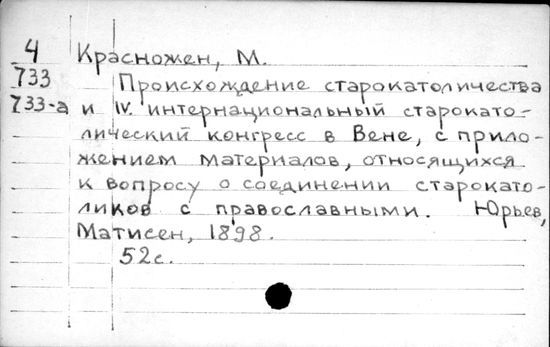 4 Красножен, М.
733 Происхождение старокатоличества
733-а и IV. интернациональный старокато-
лический конгресс в Вене, с прило-
жением материалов, относящихся
к вопросу о соединении старокато-
ликов с православными. Юрьев,
Матисен, 1898.
52с.